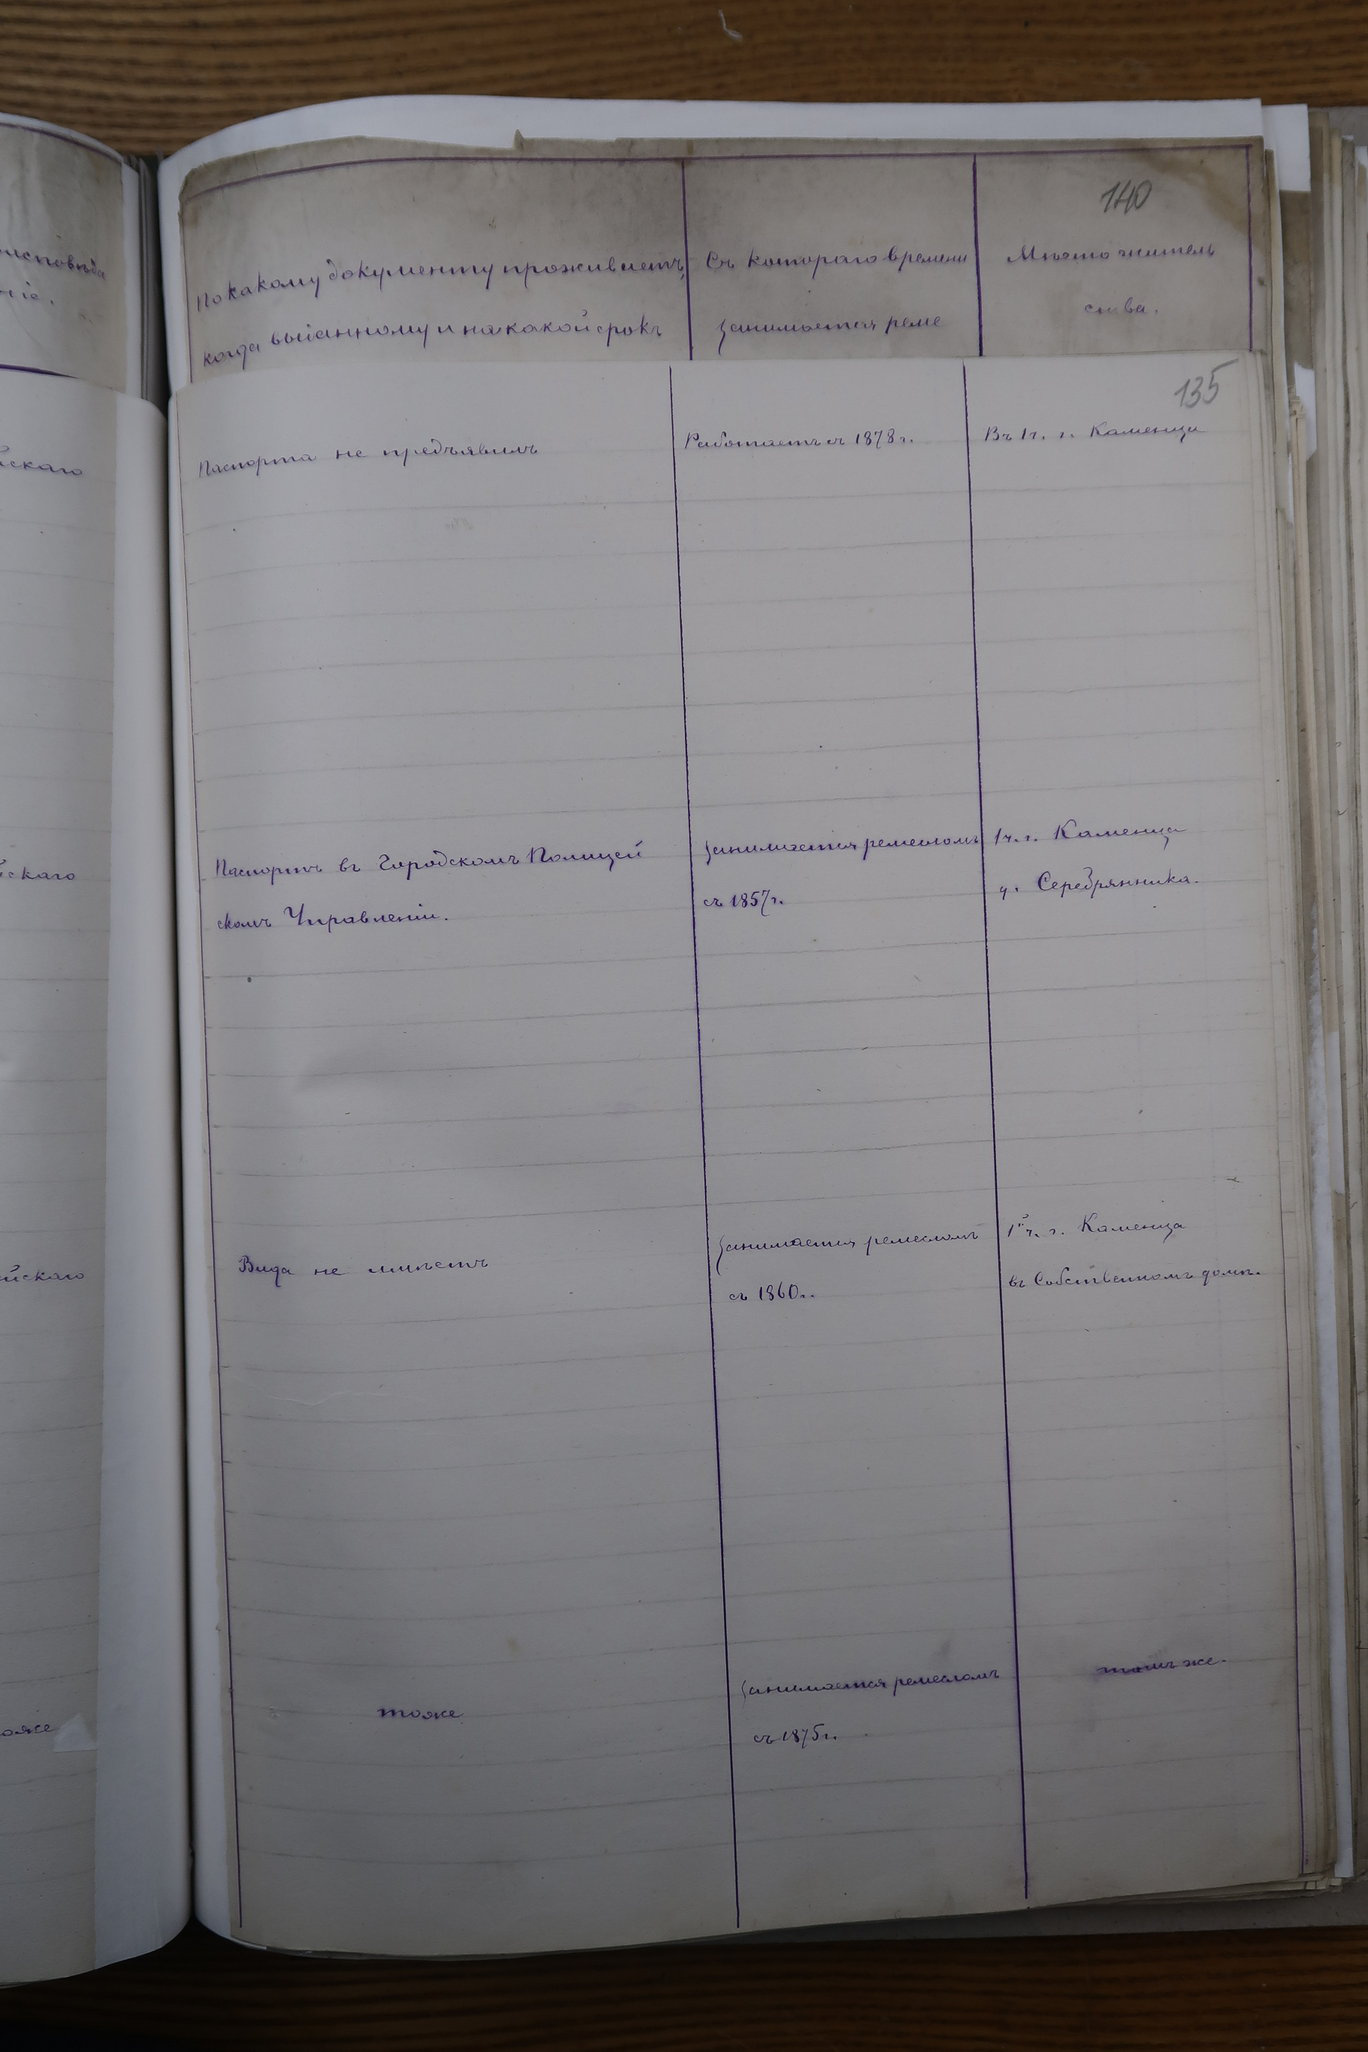 140
По какому документу проживаетъ,
когда выданному и на какой срокъ
Съ котораго времени
занимается реме
Мѣсто житель
ства.
135
Паспорта не предъявилъ
Работаетъ съ 1878 г.
Въ 1 ч. г. Каменца
Паспортъ въ Городскомъ Полицей
скомъ Управленіи.
занимается ремесломъ
съ 1857 г.
1 ч. г. Каменца
у. Серебрянника.
Вида не имѣетъ
занимается ремесломъ
съ 1860 г.
1й ч. г. Каменца
въ Собственномъ домѣ.
тоже
занимается ремесломъ
съ 1875 г.
тамъ же.
йскаго
йскаго
йскаго
оже